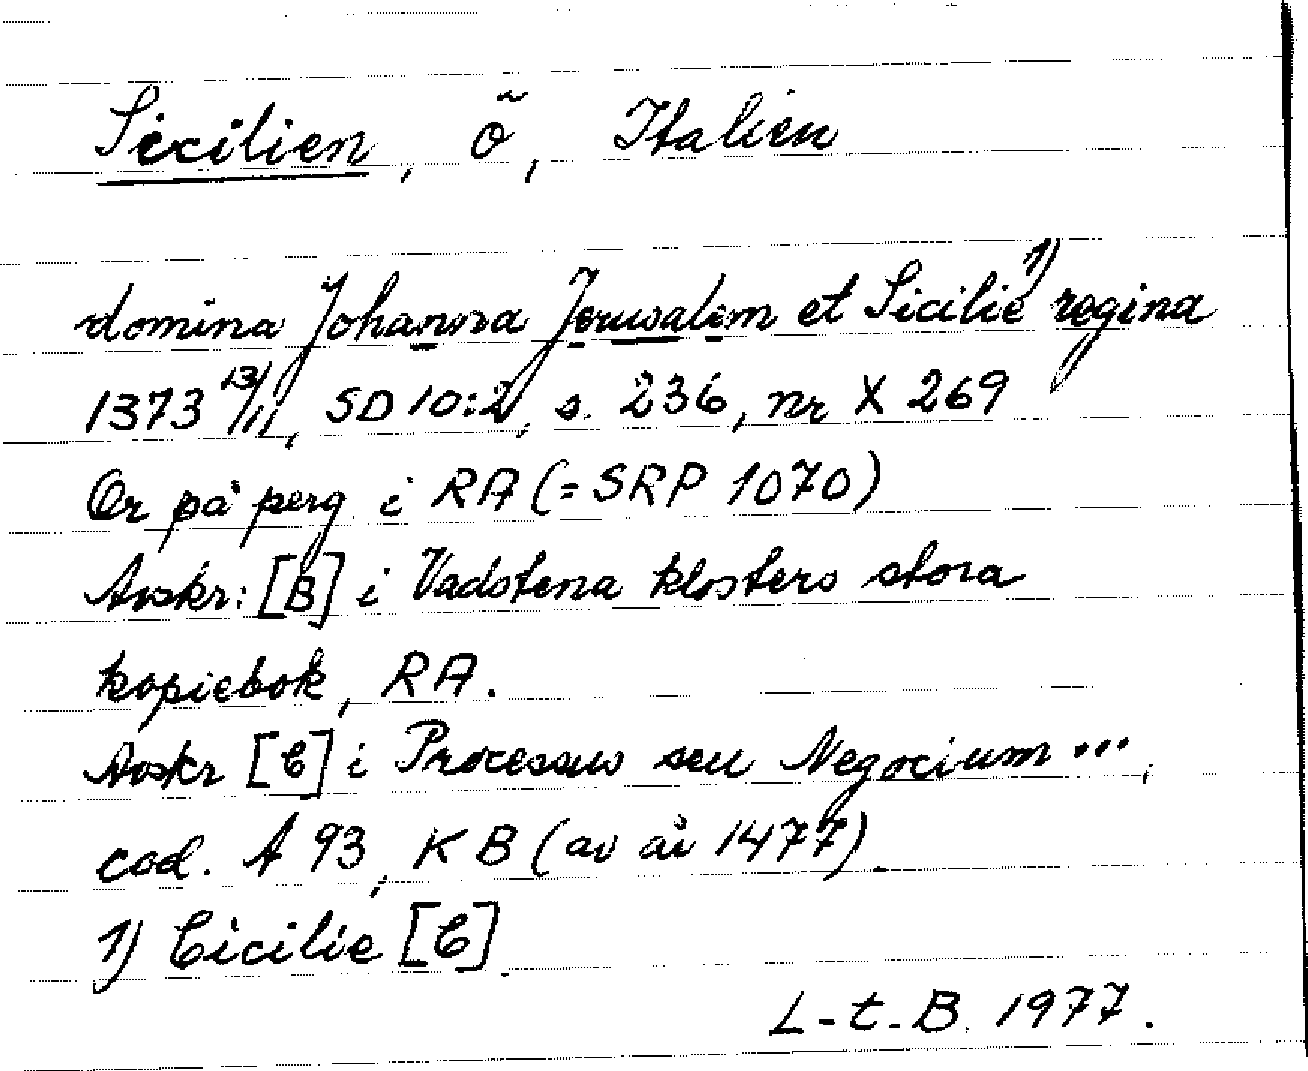 Sicilien, ö, Italien
domina Johanna Jerusalem et Sicilie 1) regina
1373 13/11, SD 10:2, s. 236, nr X 269
Or på perg i RA (= SRP 1070)
Avskr: [B] i Vadstena klosters stora
kopiebok, RA.
Avskr [C] i Processus seu Negocium ...,
cod. A 93, KB (av år 1477).
1) Cicilie [C].
L-t-B. 1977.